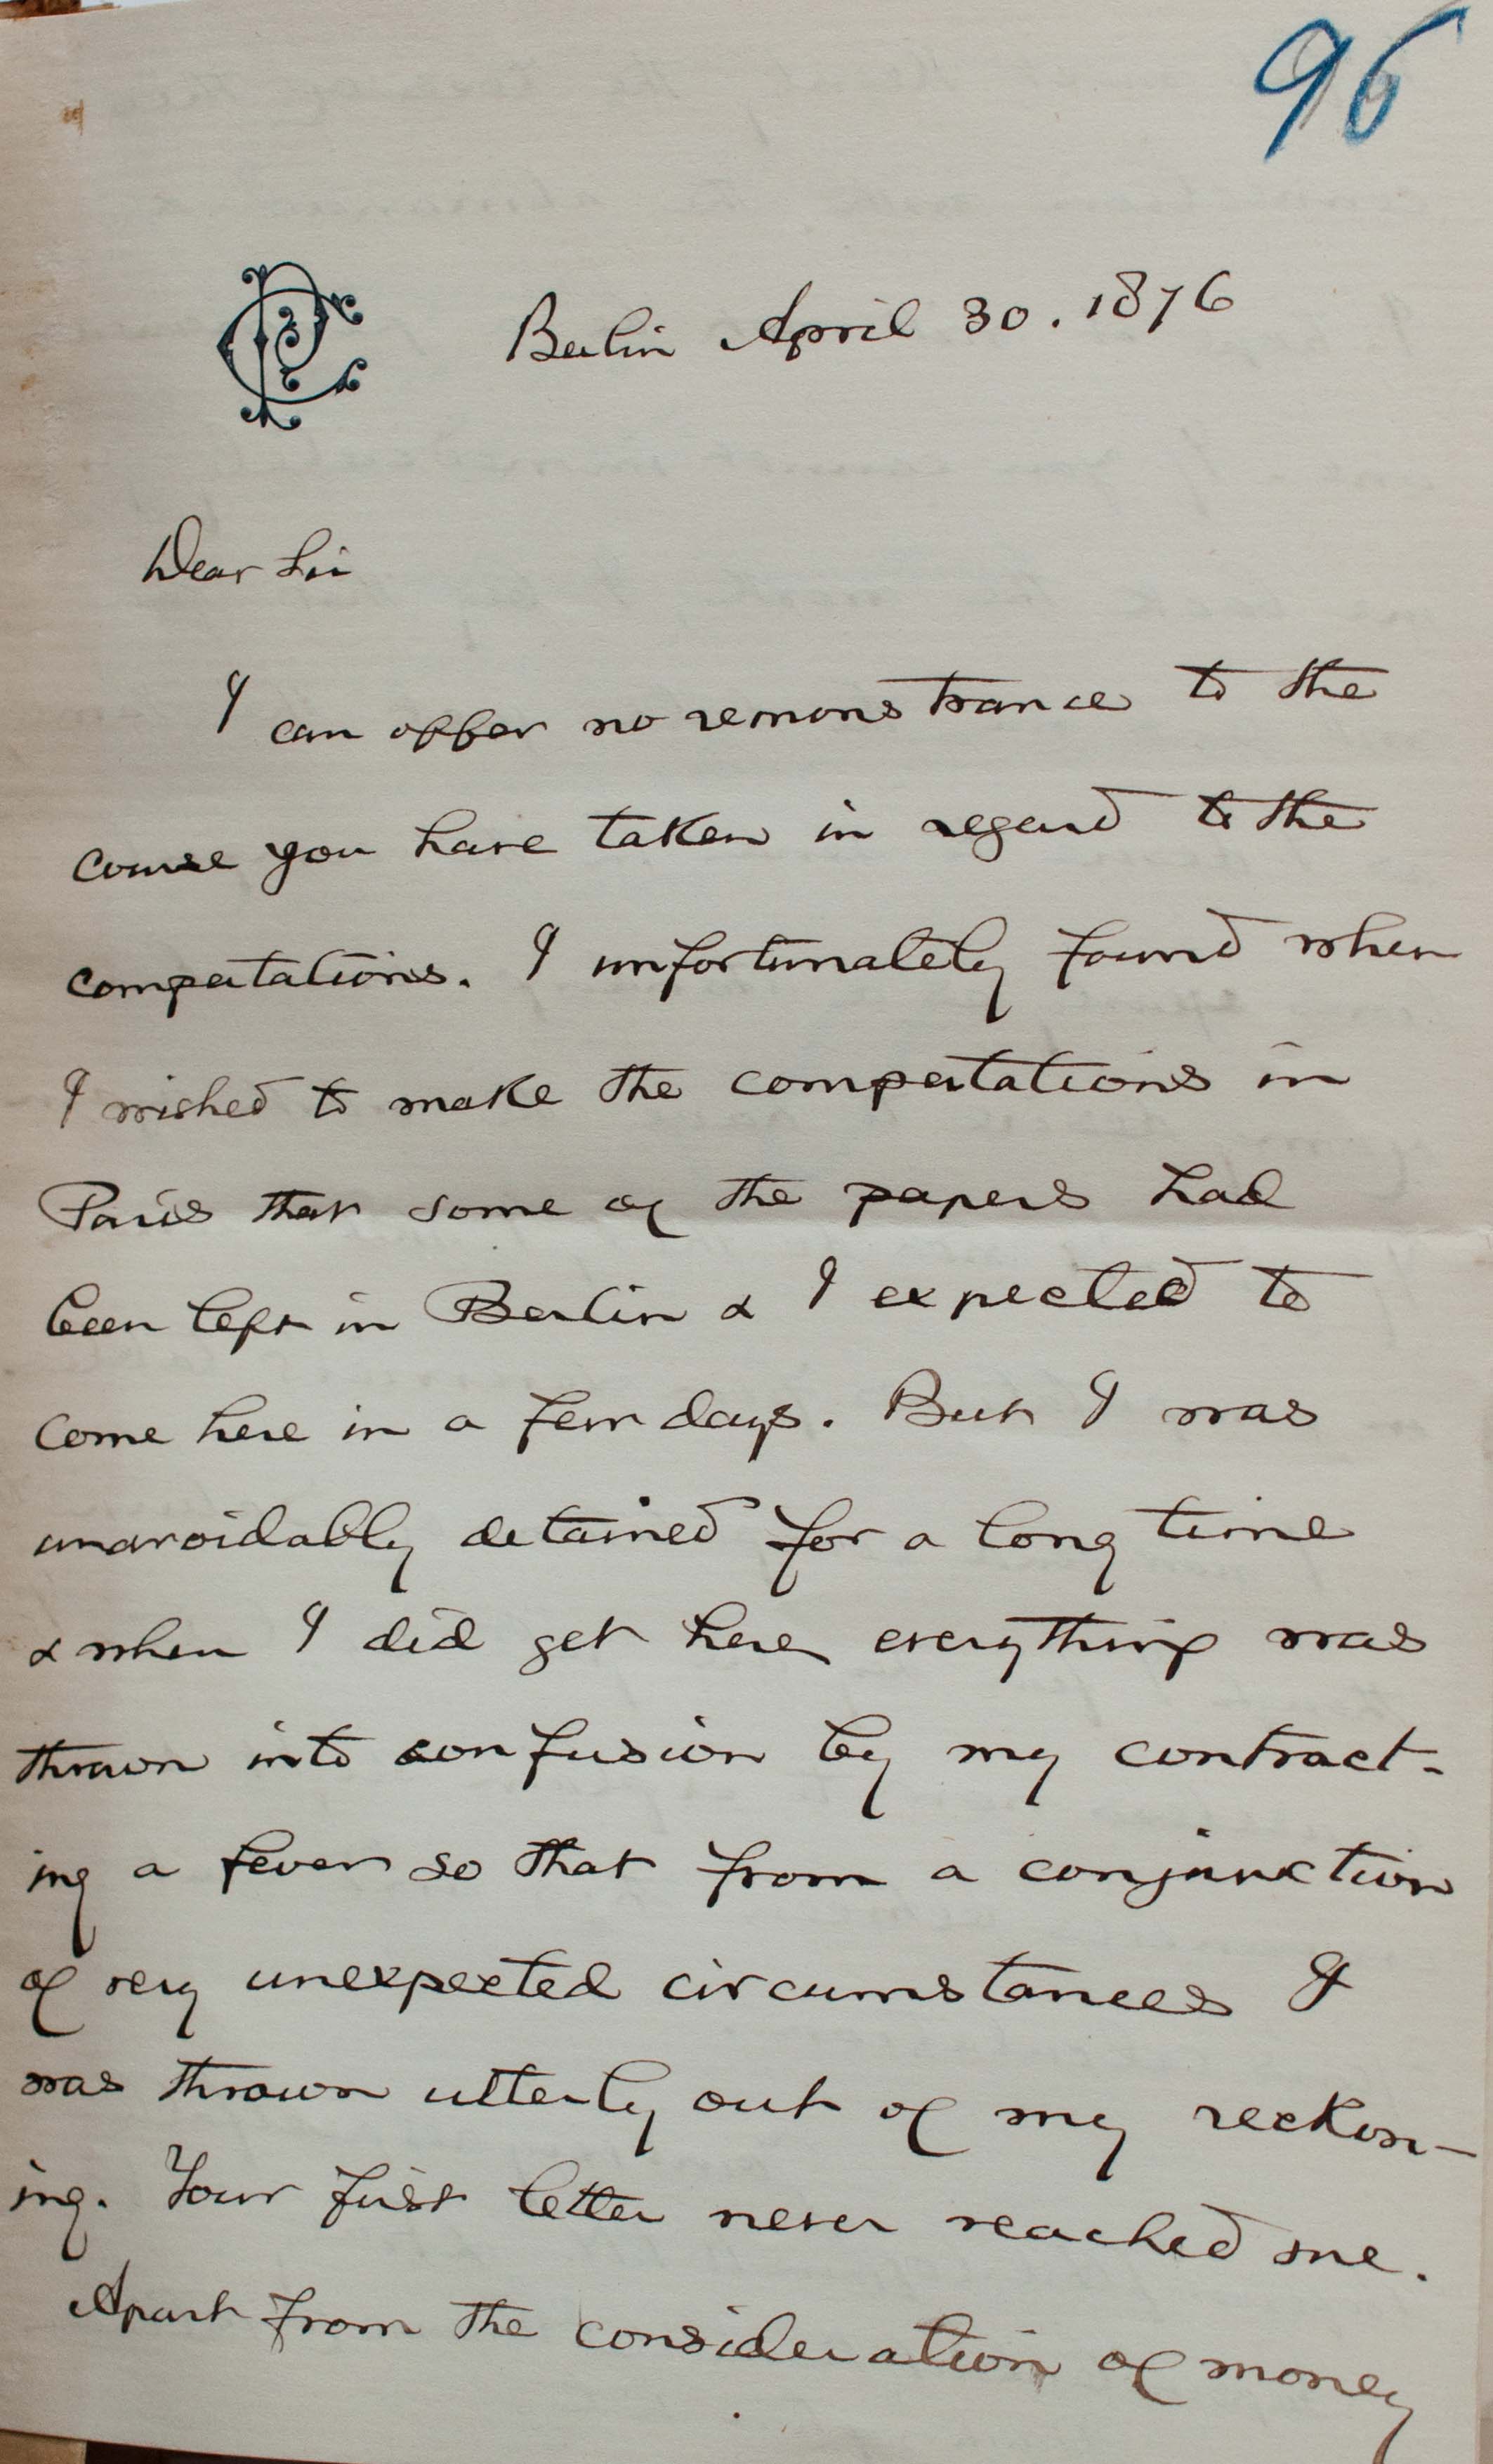 96
Berlin April 30. 1876
Dear Sir
I can offer no remonstrance to the
course you have taken in regard to the
computations. I unfortunately found when
I wished to make the computations in
Paris that some of the papers had
been left in Berlin & I expected to
come here in a few days. But I was
unavoidably detained for a long time
& when I did get here everything was
thrown into confusion by my contract-
ing a fever so that from a conjunction
of very unexpected circumstances I
was thrown utterly out of my reckon-
ing. Your first letter never reached me.
Apart from the consideration of money